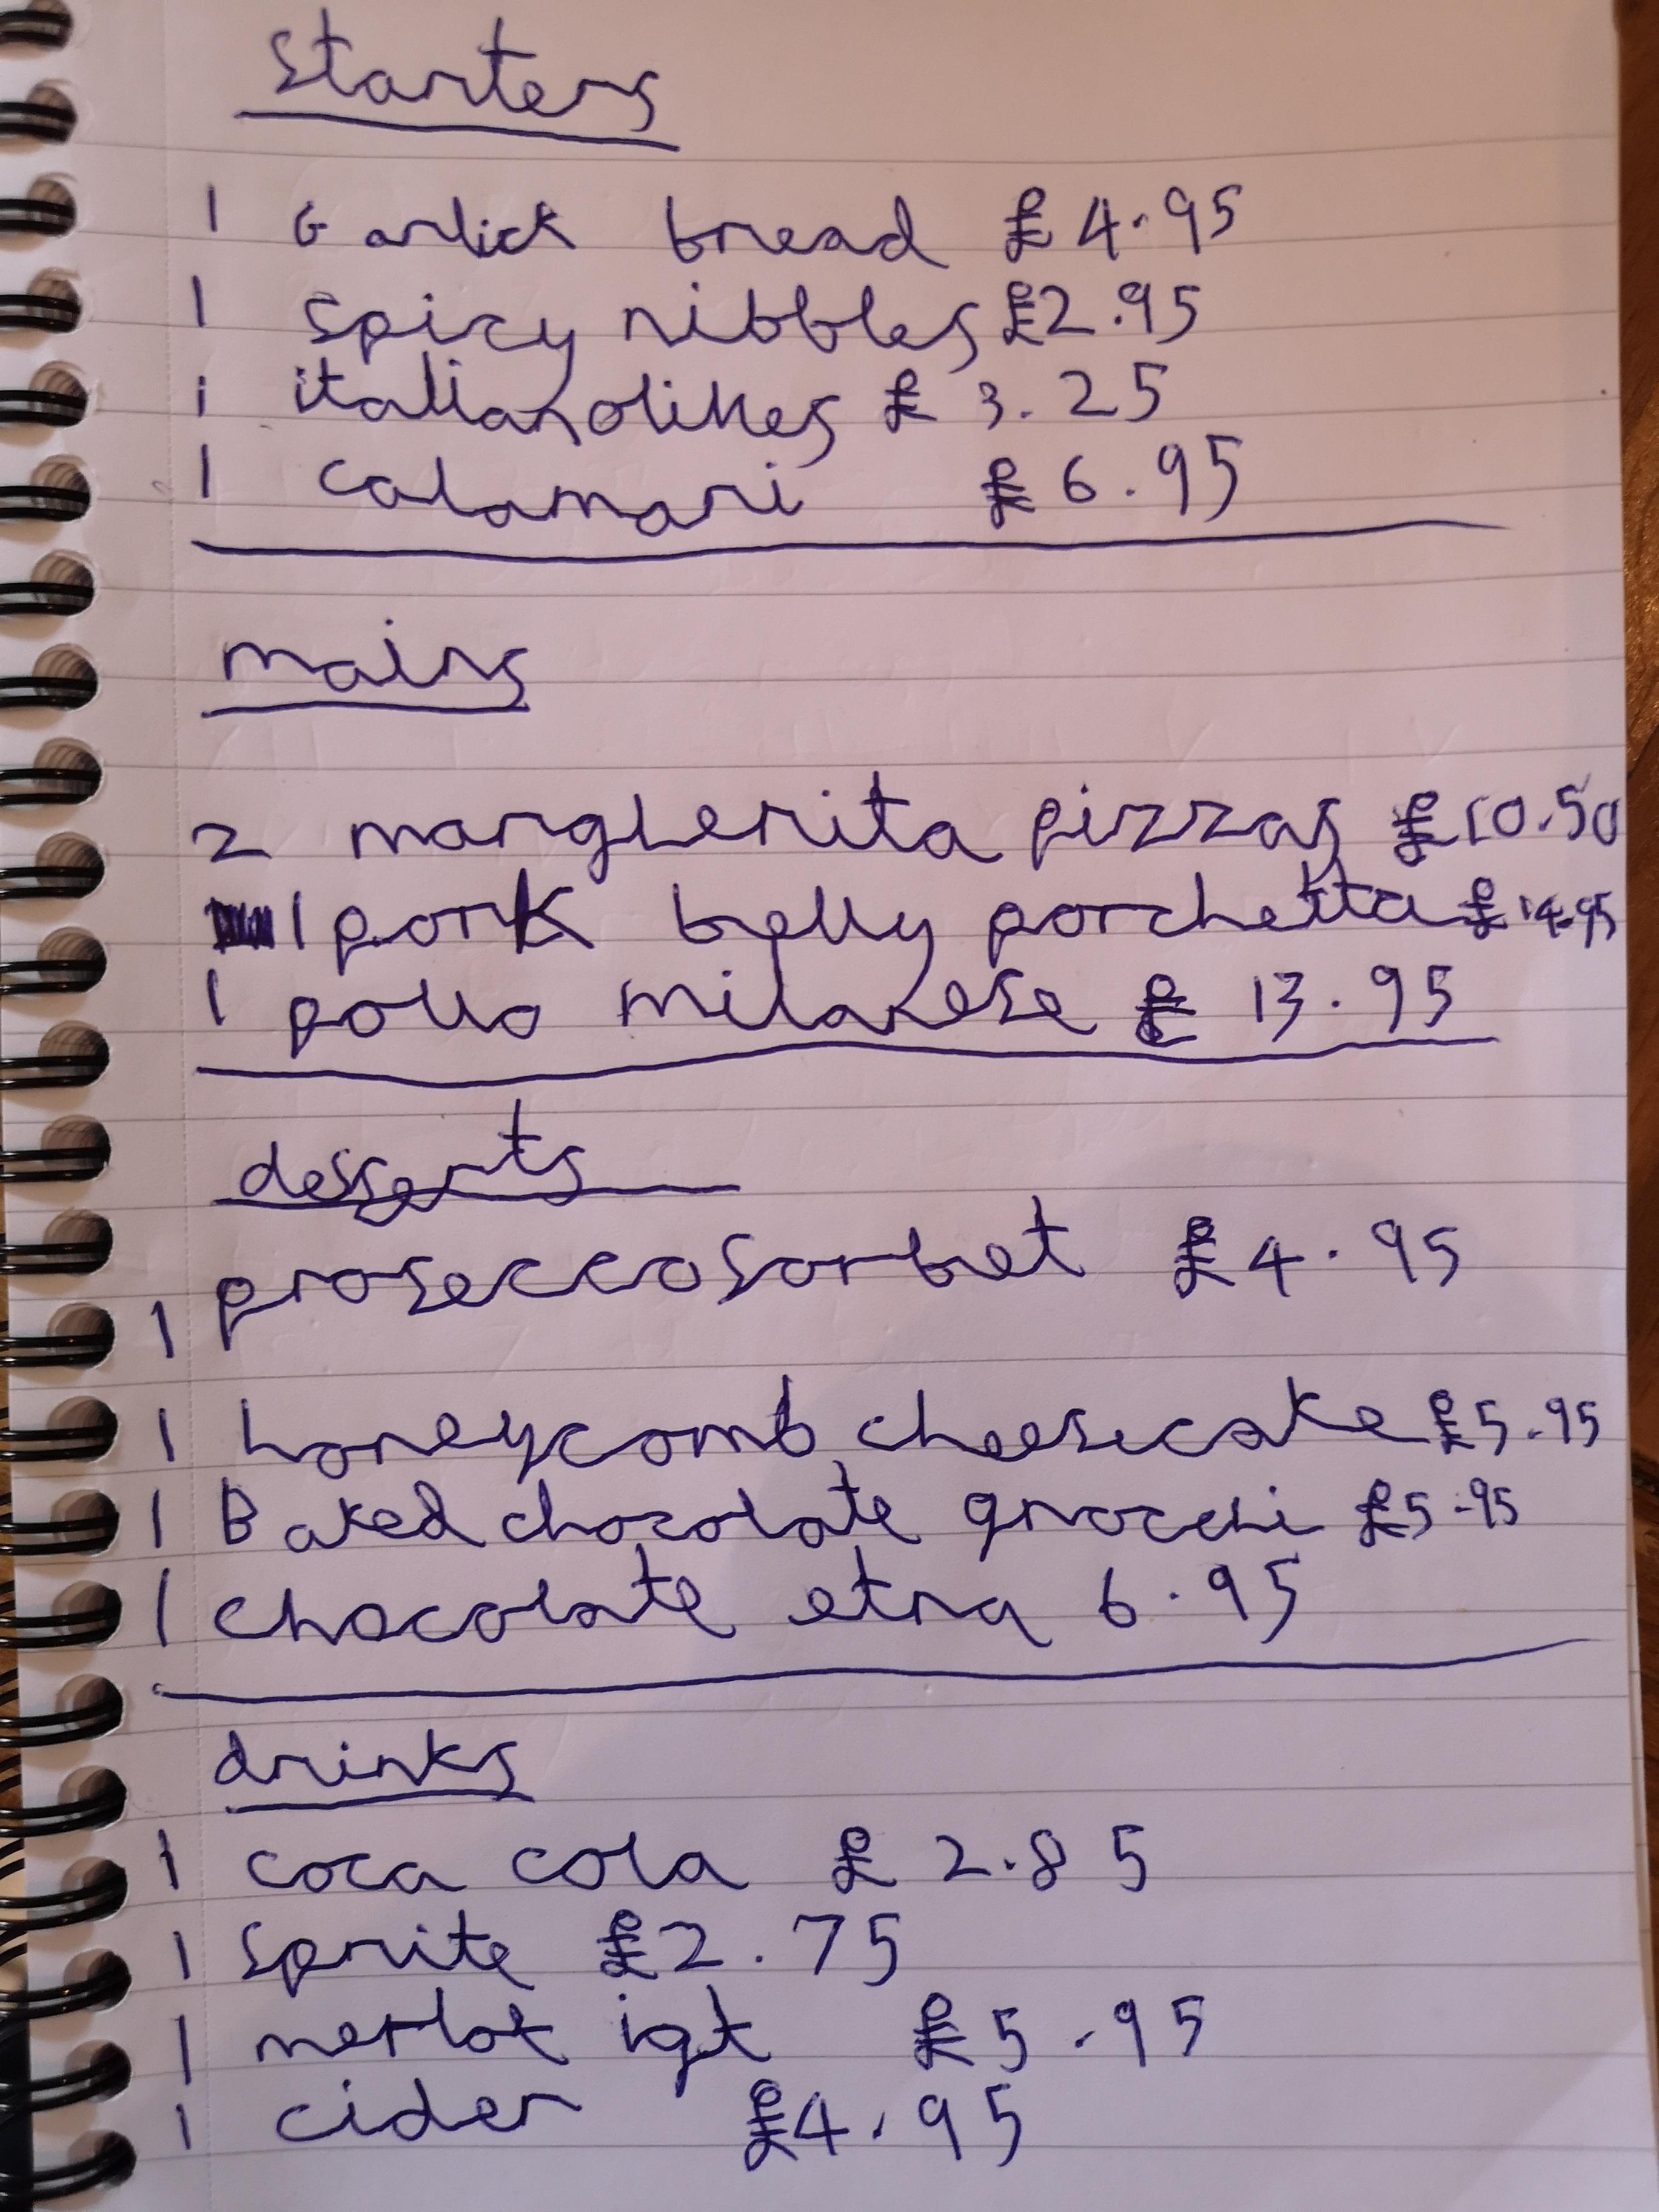 starters
1 Garlick bread £4.95
1 spicy nibbles £2.95
1 italian olives £3.25
1 calamari £6.95
mains
2 margherita pizzas £10.50
1 pork belly porchetta £14.95
1 pollo milanese £13.95
desserts
1 prosecco sorbet £4.95
1 honeycomb cheesecake £5.95
1 Baked chocolate gnocchi £5.95
1 chocolate etna 6.95
drinks
1 coca cola £2.85
1 sprite £2.75
1 merlot igt £5.95
1 cider £4.95